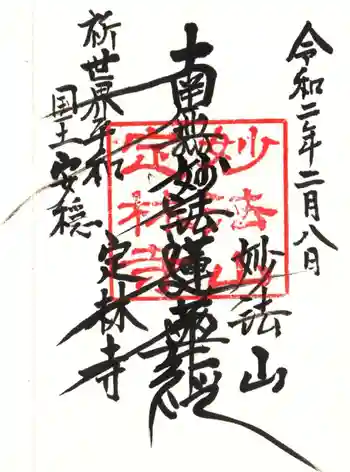 令和二年二月八日
妙法山
南無妙法蓮華経
定林寺
祈世界平和
国土安穏
妙法山
定林寺